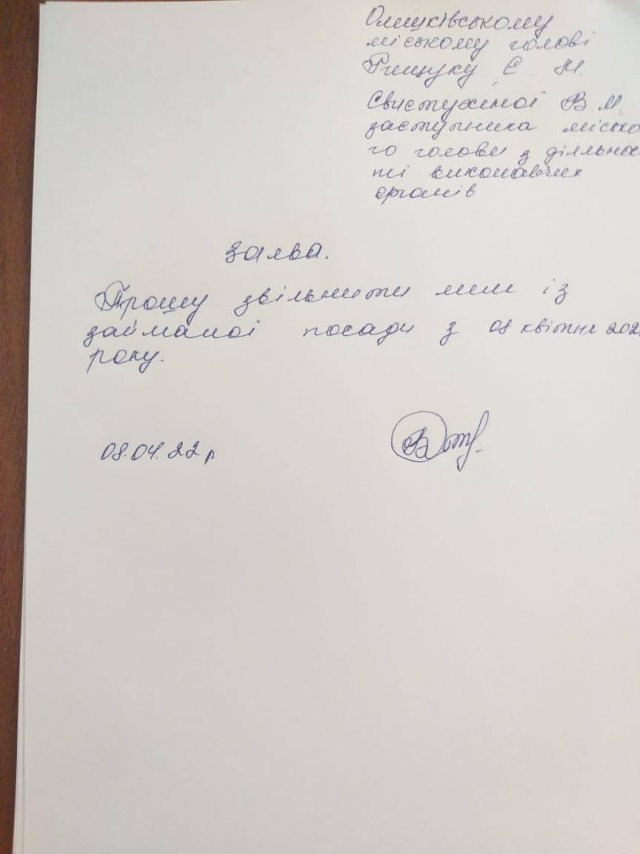 Олешківському
міському голові
Рищуку Є. М.
Свистухіної В М.
заступника місько
го голови з діяльнос
ті виконавчих
органів
Заява.
Прошу звільнити мене із
займаної посади з 08 квітня 202
року.
08.04.22 р